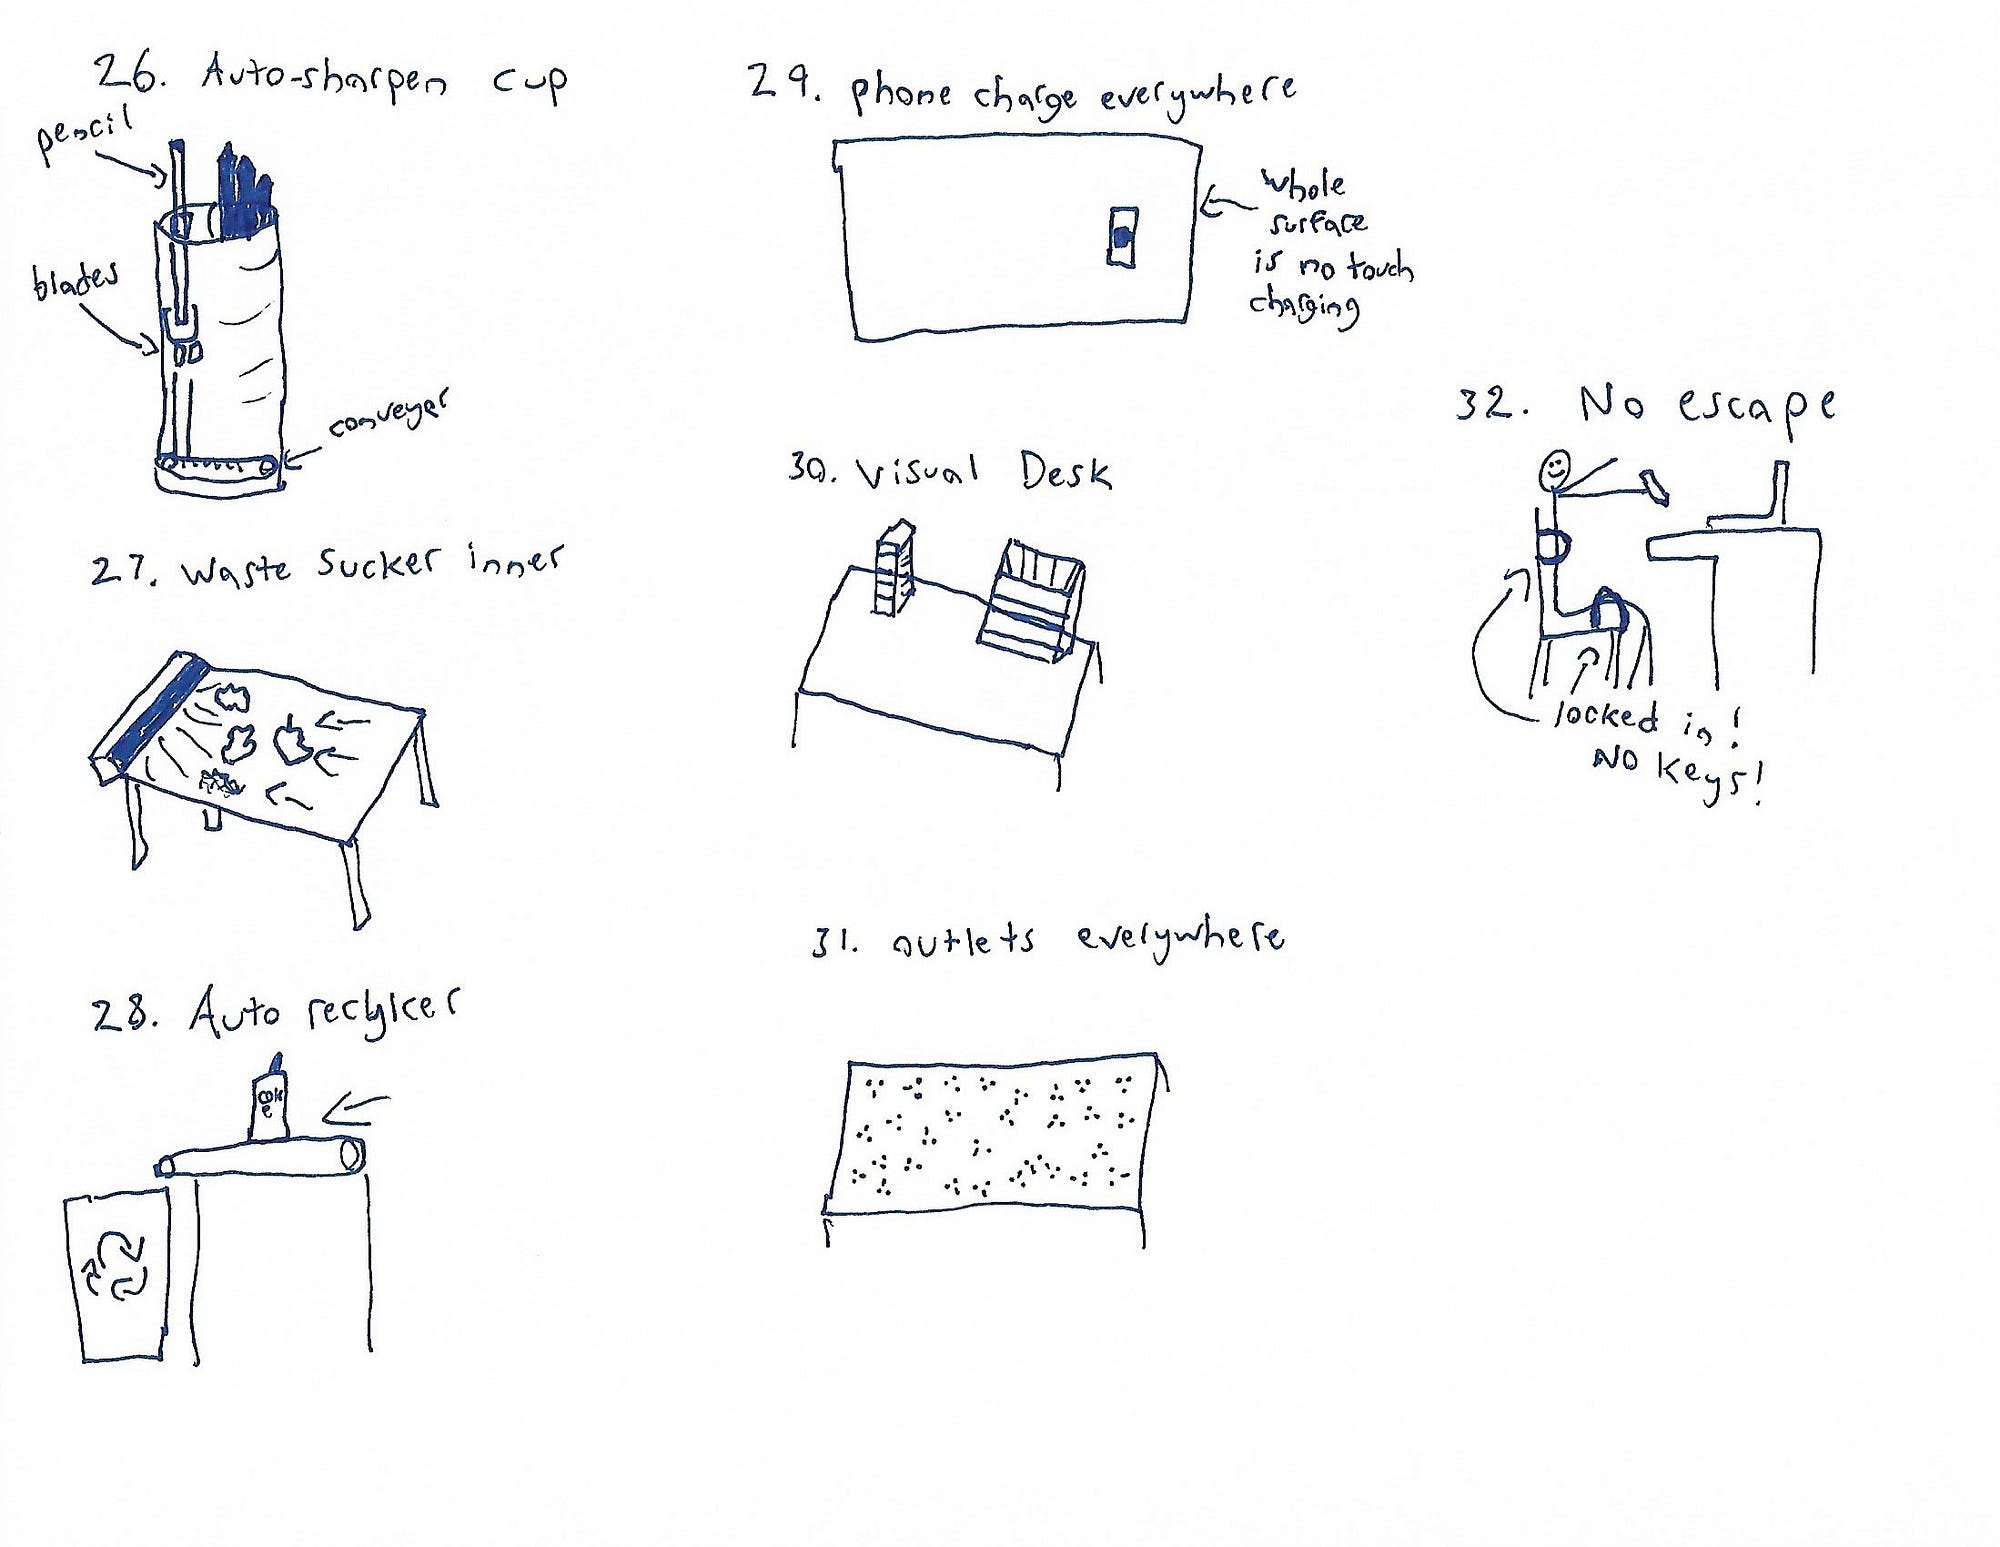 26. Auto-sharpen cup
pencil
blades
conveyer
27. Waste Sucker inner
28. Auto recylcer
coke
29. phone charge everywhere
whole
surface
is no touch
charging
30. Visual Desk
31. outlets everywhere
32. No escape
locked in!
NO Keys!